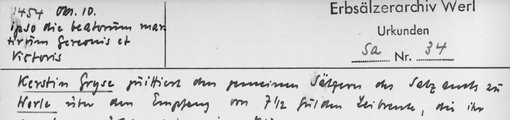 1454 Okt. 10.
ipso die beatorum mar
tirum Gereonis et
Victoris
Erbsälzerarchiv Werl
Urkunden
Sa Nr. 34
Kerstin Gryse quittiert den gemeinen Sälzern des Salzamts zu
Werle über den Empfang von 7 1/2 Gulden Leibrente, die ihr